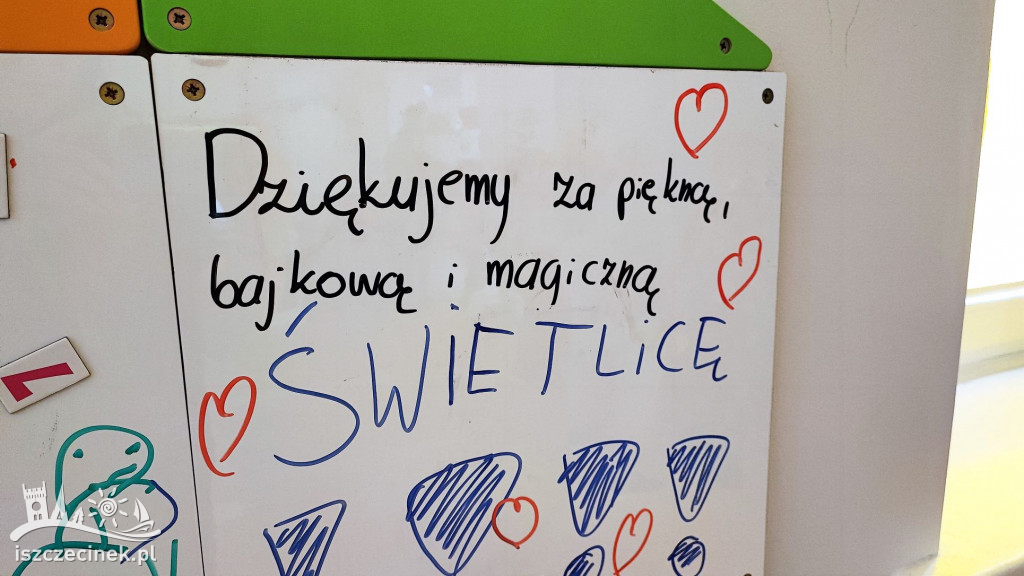 Dziękujemy za piękną,
bajkową i magiczną
ŚWIETLiCĘ
iszczecinek.pl